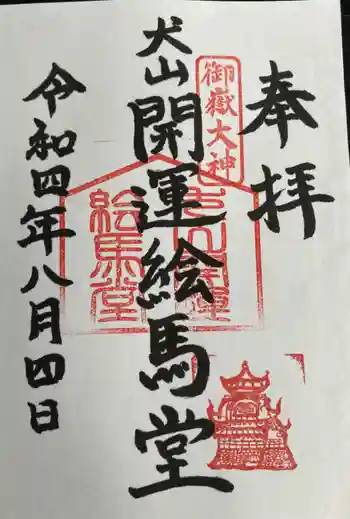 奉拝
御嶽大神
犬山
開運絵馬堂
絵馬堂
令和四年八月四日